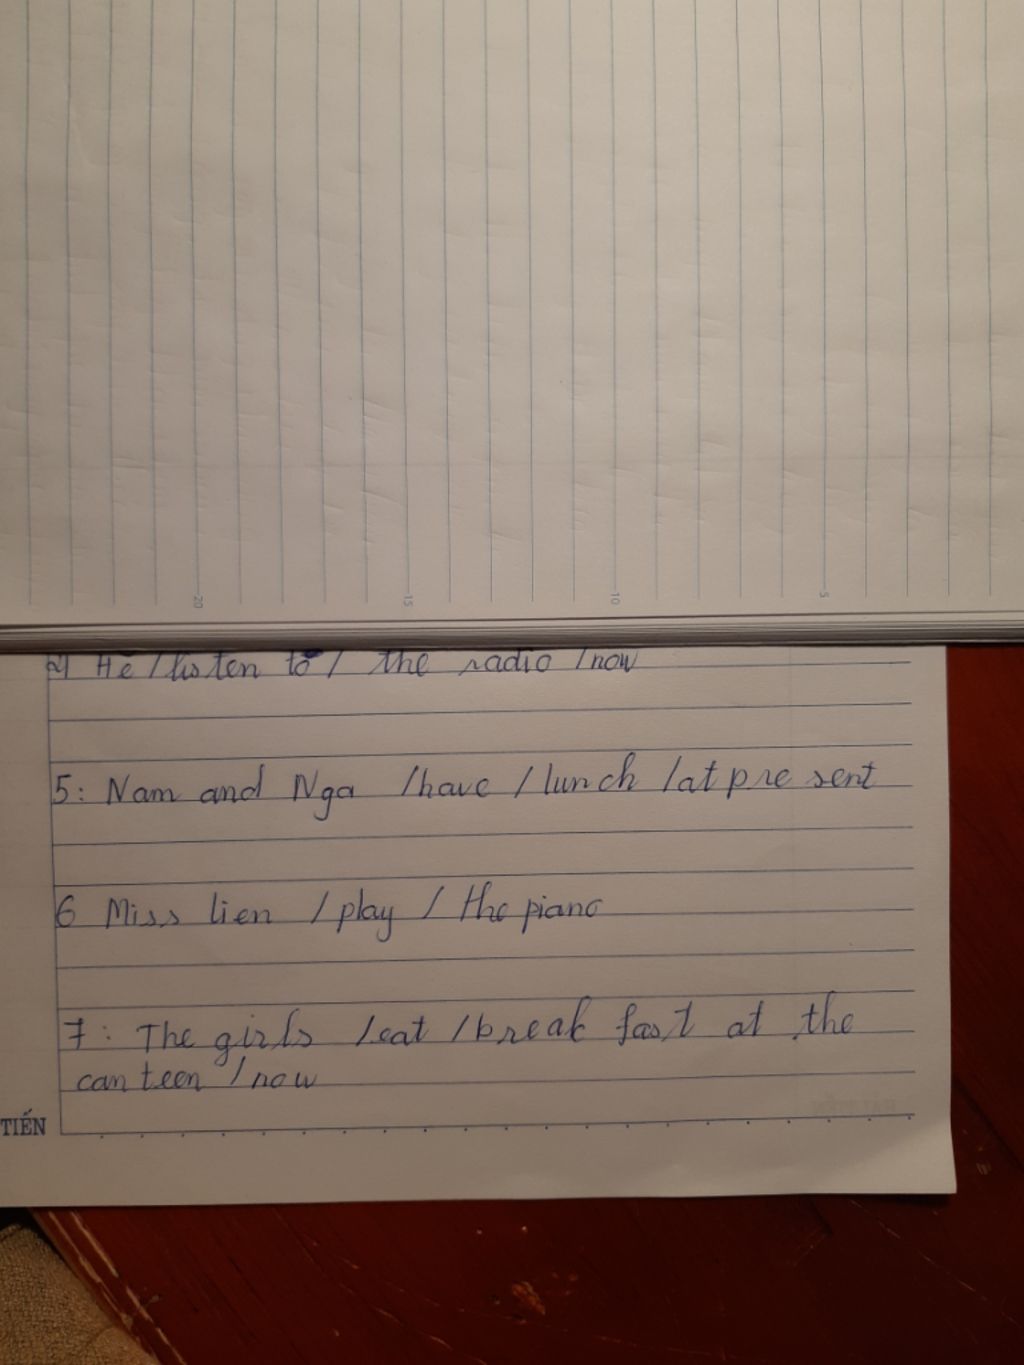 20
15
10
5
4 He / listen to / the radio / now
5: Nam and Nga / have / lunch / at present
6 Miss lien / play / the piano
7: The girls / eat / break fast at the
canteen / now
TIẾN